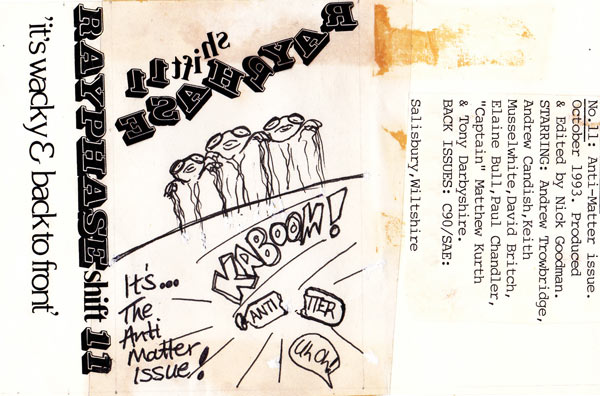 'it's wacky & back to front'
RAYPHASE shift 11
RAYPHASE
shift 11
KABOOM!
ANTI
TTER
Uh Oh!
It's...
The
Anti
Matter
Issue!
No.11: Anti-Matter issue.
October 1993. Produced
& Edited by Nick Goodman.
STARRING: Andrew Trowbridge,
Andrew Candish,Keith
Musselwhite,David Britch,
Elaine Bull,Paul Chandler,
"Captain" Matthew Kurth
& Tony Darbyshire.
BACK ISSUES: C90/SAE:
Salisbury,Wiltshire